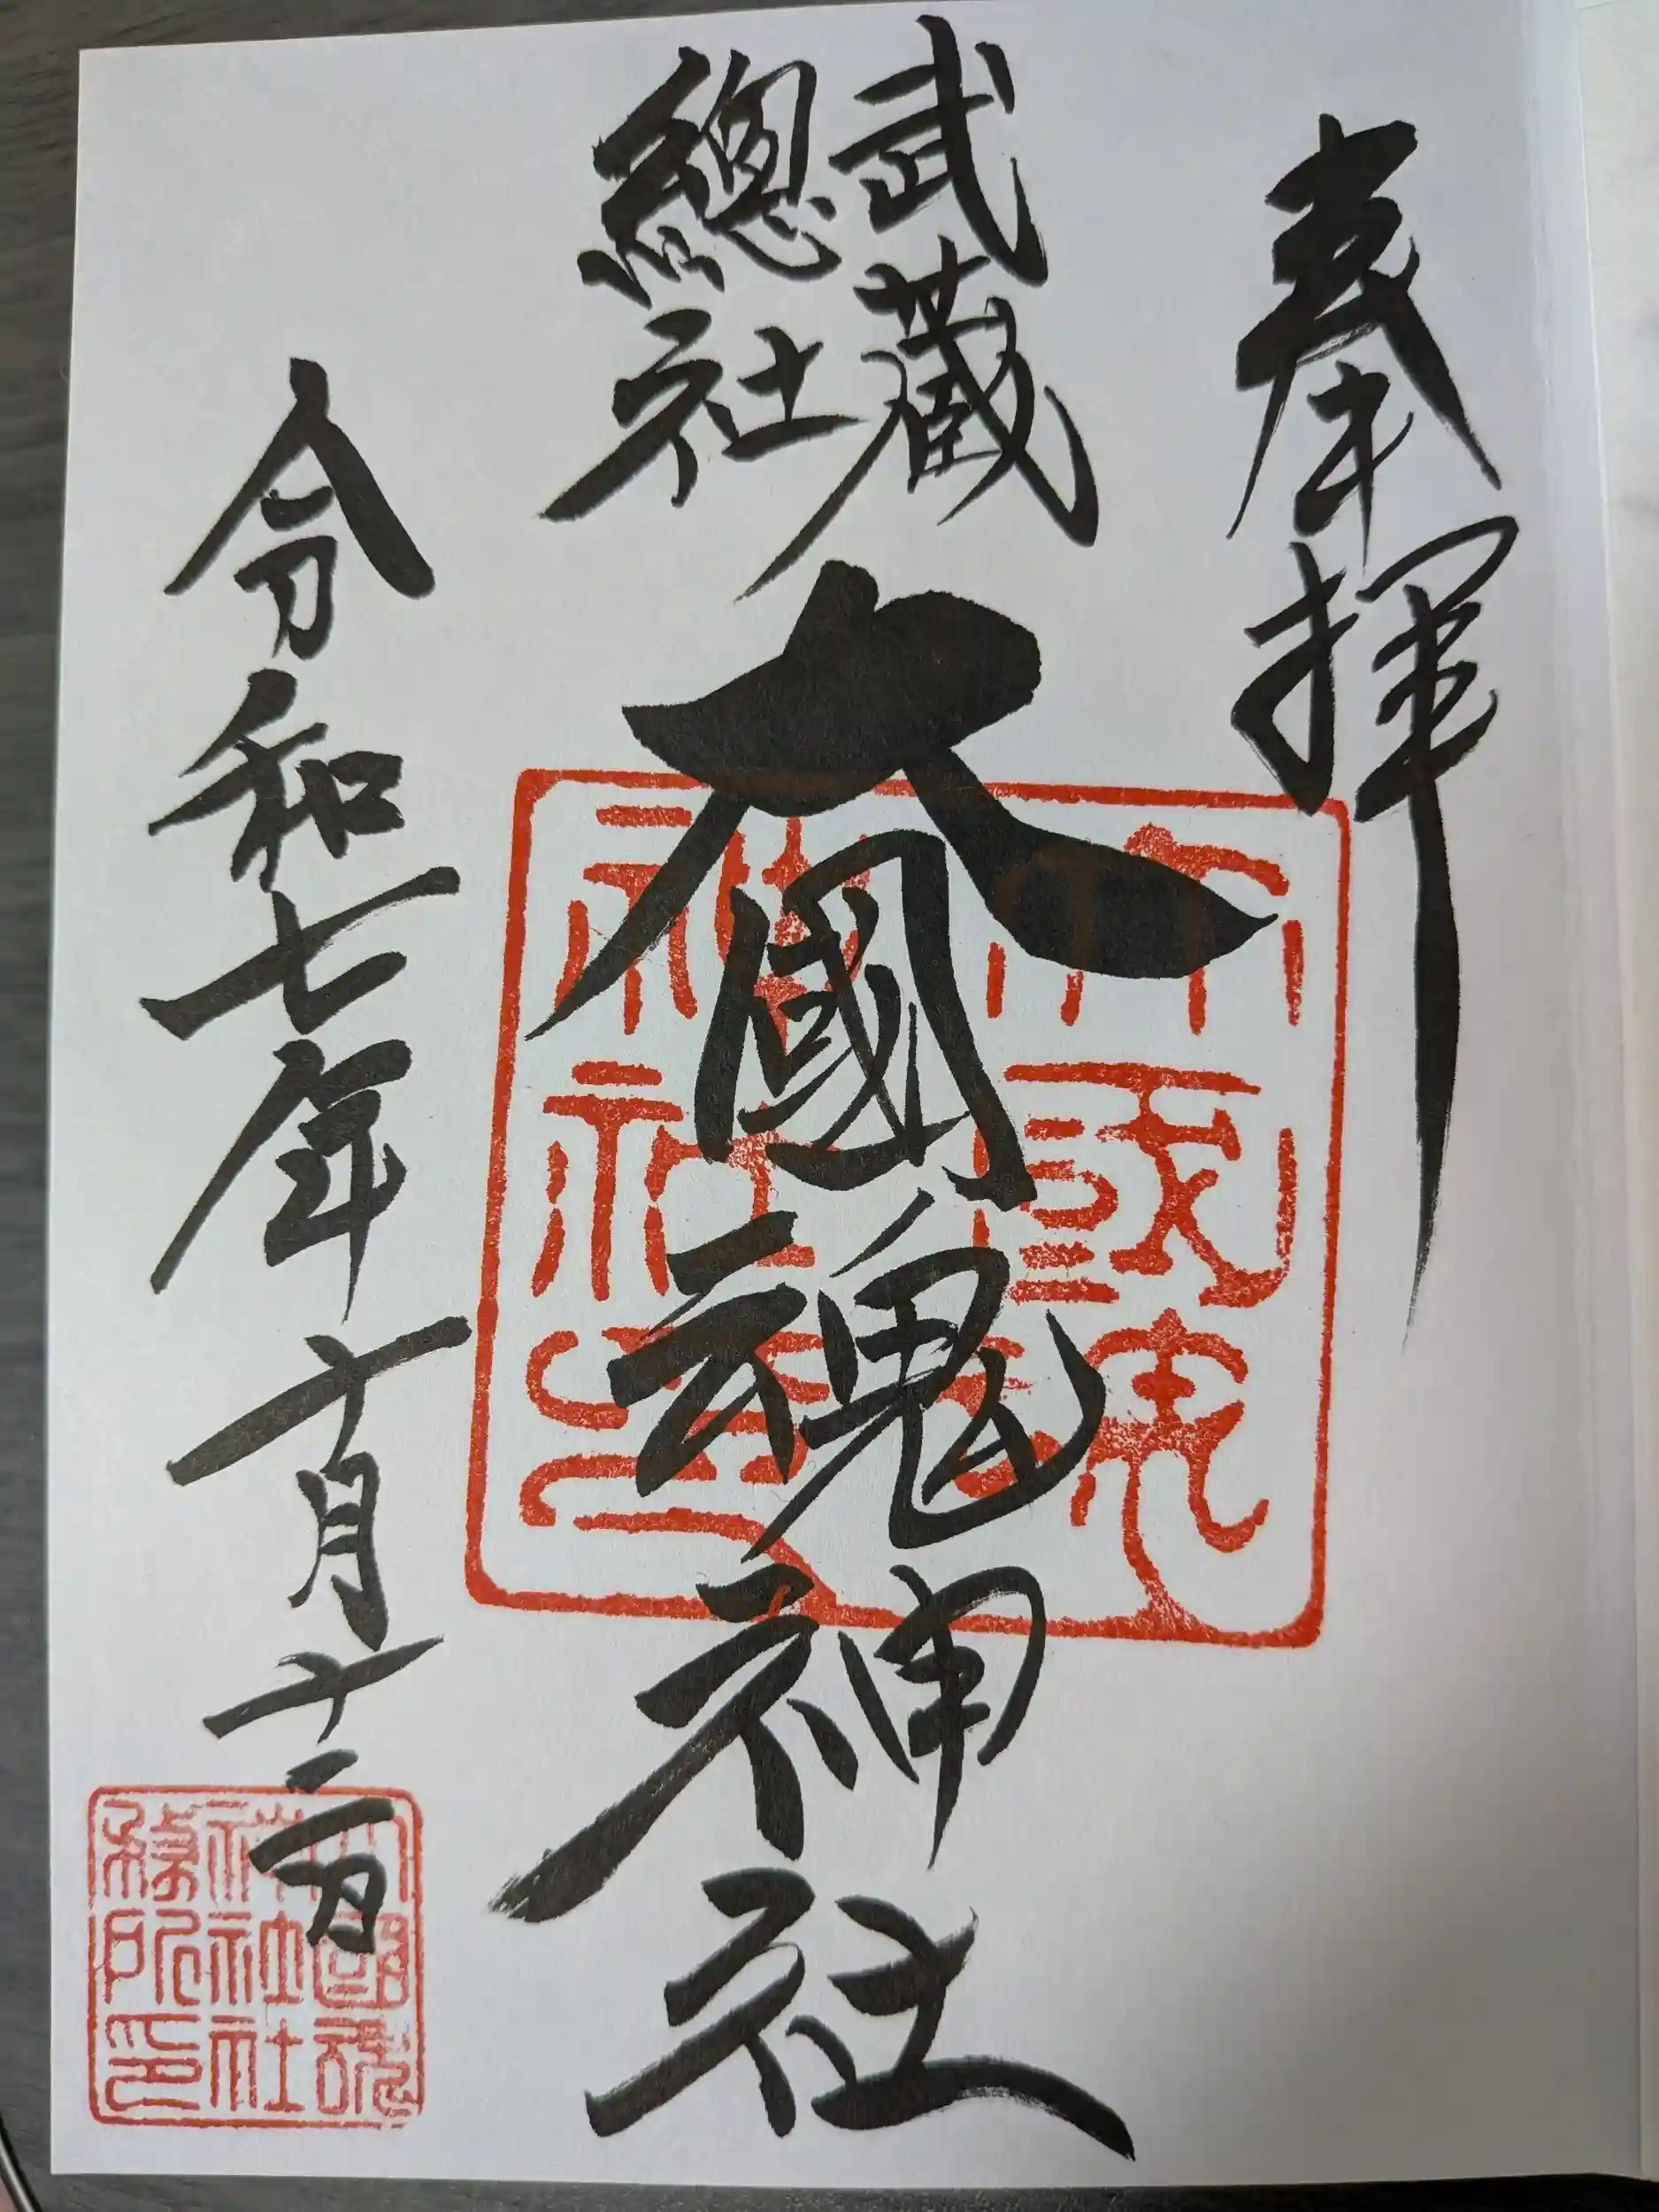 奉拝
武蔵
總社
大國魂神社
令和七年十月十二日
大國魂
神社印
大國魂
神社社
務所印